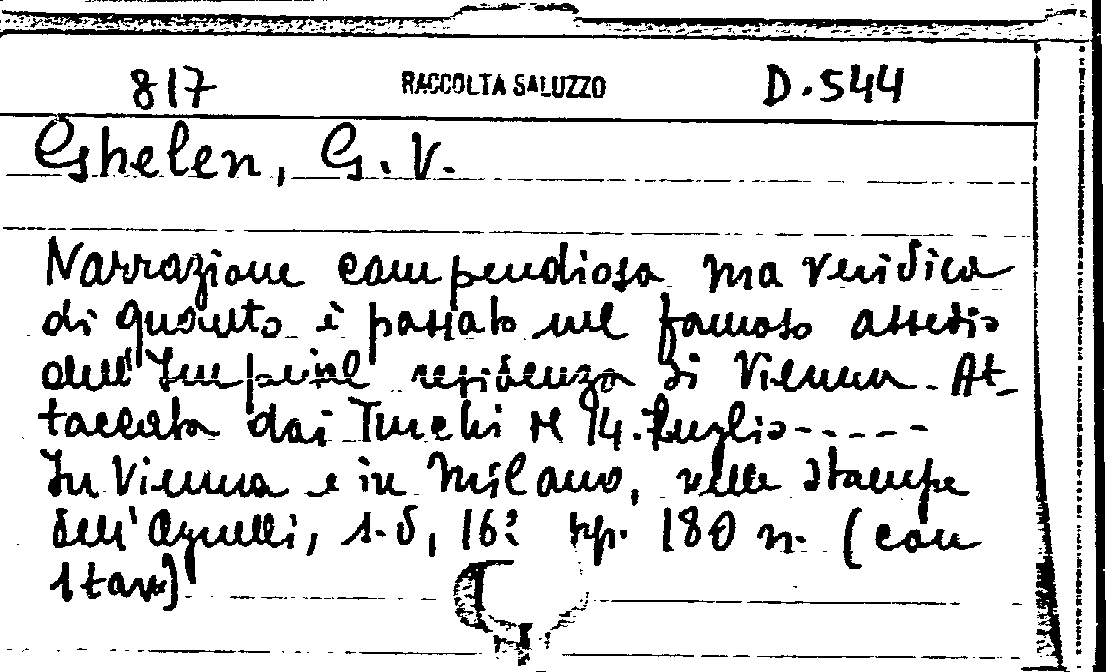 817 RACCOLTA SALUZZO D.544
Ghelen, G. V.
Narrazione compendiosa ma veridica
di quanto è passato nel famoso assedio
dell'Imperial residenza di Vienna. At-
taccata dai Turchi il 14. Luglio-----
In Vienna e in Milano, nelle stampe
dell'Agnelli, s.d, 16? pp. 180 n. (con
1 tav)